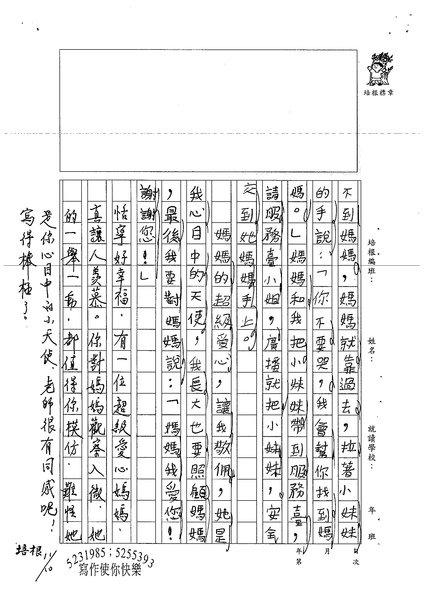 培根標章
培根編班：
姓名：
就讀學校：
年 班
年 月 日
第 次
不到媽媽，媽媽就靠過去，拉著小妹妹
的手說：「你不要哭，我會幫你找到媽
媽。」媽媽和我把小妹妹帶到服務臺，
請服務臺小姐，廣播就把小妹妹，安全
交到她媽媽手上。
媽媽的超級愛心，讓我敬佩，她是
我心目中的天使，我長大也要照顧媽媽
，最後我要對媽媽說：「媽媽我愛您！
謝謝您！」
恬寧好幸福，有一位超級愛心媽媽，
真讓人羨慕。你對媽媽觀察入微，她
的一舉一動，都值得你模仿，難怪她
是你心目中的小天使，老師很有同感呢！
寫得棒極了。
培根 11/10
5231985；5255393
寫作使你快樂